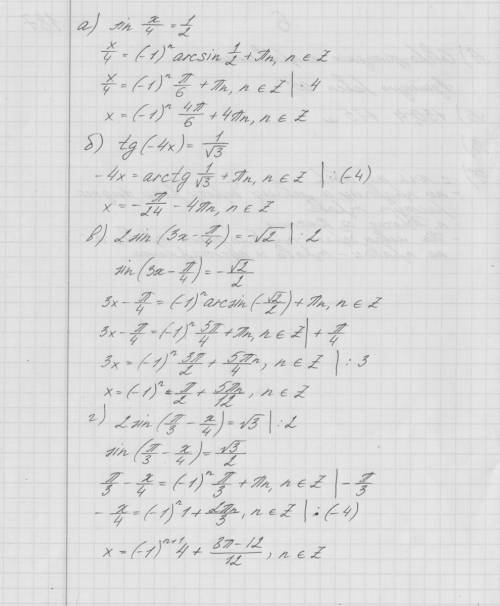 а) sin x/4 = 1/2
x/4 = (-1)^n arcsin 1/2 + πn, n ∈ Z
x/4 = (-1)^n π/6 + πn, n ∈ Z | · 4
x = (-1)^n 4π/6 + 4πn, n ∈ Z
б) tg(-4x) = 1/√3
-4x = arctg 1/√3 + πn, n ∈ Z | : (-4)
x = -π/24 - 4πn, n ∈ Z
в) 2sin(3x - π/4) = -√2 | : 2
sin(3x - π/4) = -√2/2
3x - π/4 = (-1)^n arcsin(-√2/2) + πn, n ∈ Z
3x - π/4 = (-1)^n 5π/4 + πn, n ∈ Z | + π/4
3x = (-1)^n 3π/2 + 5πn/4, n ∈ Z | : 3
x = (-1)^n π/2 + 5πn/12, n ∈ Z
г) 2sin(π/3 - x/4) = √3 | : 2
sin(π/3 - x/4) = √3/2
π/3 - x/4 = (-1)^n π/3 + πn, n ∈ Z | - π/3
- x/4 = (-1)^n 1 + 2πn/3, n ∈ Z | · (-4)
x = (-1)^{n+1} 4 + (8π-12)/12, n ∈ Z